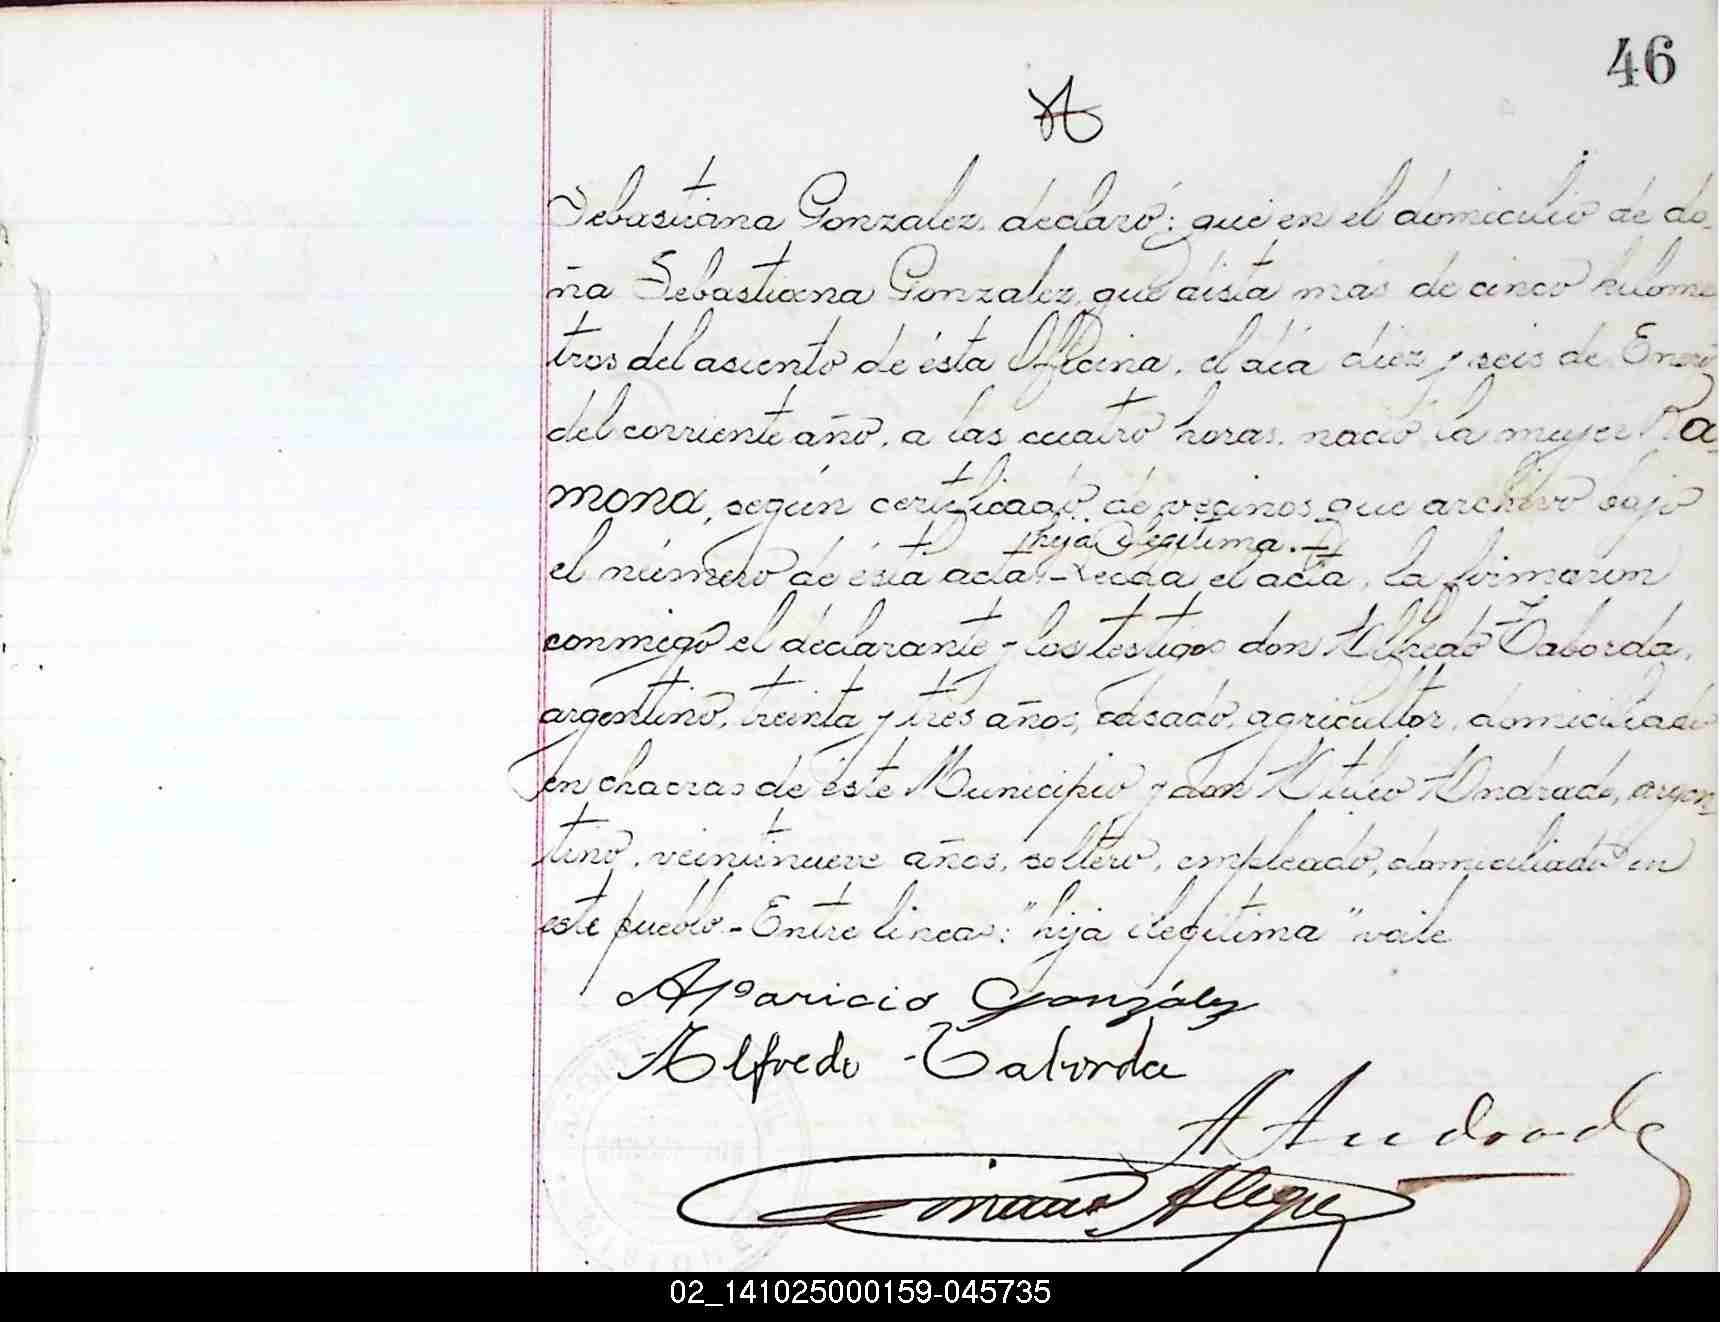 46
Sebastiana Gonzalez, declaró: que en el domicilio de do-
ña Sebastiana Gonzalez, que dista más de cinco kilome
tros del asiento de ésta Oficina, el día diez y seis de Enero
del corriente año, a las cuatro horas, nació la mujer Ra-
mona, según certificado de vecinos que archivo bajo
hija ilegitima.-
el número de ésta acta.- Leida el acta, la firmaron
conmigo el declarante y los testigos don Alfredo Taborda,
argentino, treinta y tres años, casado, agricultor, domiciliado
en chacras de éste Municipio y don Atilio Andrade, argen-
tino, veintinueve años, soltero, empleado, domiciliado en
este pueblo.- Entre lineas: "hija ilegitima" vale
Aparicio González
Alfredo Taborda
A Andrade
Alegre
02_141025000159-045735